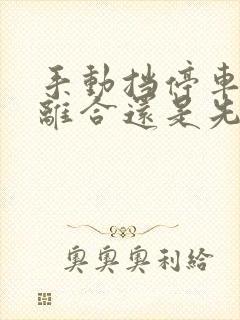 手動挡停車
離合還是先
奧奧奧利給